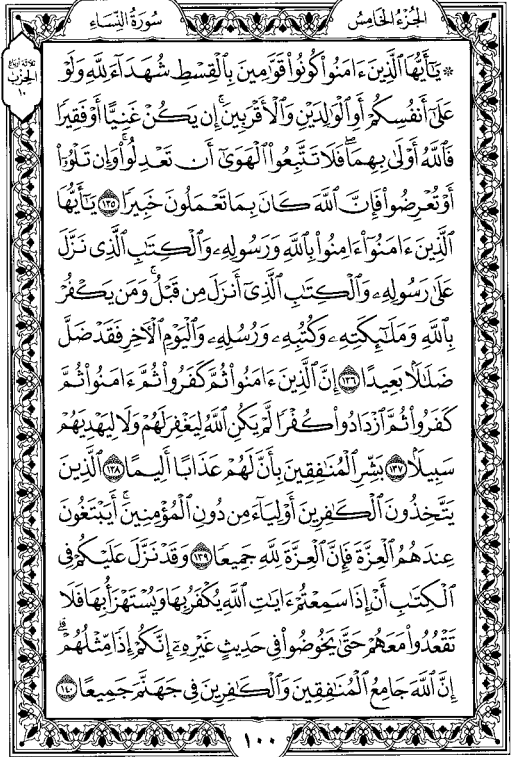 الجزء الخامس
سورة النساء
ثلاثة أرباع
الحزب
١٠
۞ يَٰٓأَيُّهَا ٱلَّذِينَ ءَامَنُواْ كُونُواْ قَوَّٰمِينَ بِٱلْقِسْطِ شُهَدَآءَ لِلَّهِ وَلَوْ
عَلَىٰٓ أَنفُسِكُمْ أَوِ ٱلْوَٰلِدَيْنِ وَٱلْأَقْرَبِينَ ۚ إِن يَكُنْ غَنِيًّا أَوْ فَقِيرًا
فَٱللَّهُ أَوْلَىٰ بِهِمَا ۖ فَلَا تَتَّبِعُواْ ٱلْهَوَىٰٓ أَن تَعْدِلُواْ ۚ وَإِن تَلْوُۥٓاْ
أَوْ تُعْرِضُواْ فَإِنَّ ٱللَّهَ كَانَ بِمَا تَعْمَلُونَ خَبِيرًا ١٣٥ يَٰٓأَيُّهَا
ٱلَّذِينَ ءَامَنُوٓاْ ءَامِنُواْ بِٱللَّهِ وَرَسُولِهِۦ وَٱلْكِتَٰبِ ٱلَّذِى نَزَّلَ
عَلَىٰ رَسُولِهِۦ وَٱلْكِتَٰبِ ٱلَّذِىٓ أَنزَلَ مِن قَبْلُ ۚ وَمَن يَكْفُرْ
بِٱللَّهِ وَمَلَٰٓئِكَتِهِۦ وَكُتُبِهِۦ وَرُسُلِهِۦ وَٱلْيَوْمِ ٱلْأَخِرِ فَقَدْ ضَلَّ
ضَلَٰلًۢا بَعِيدًا ١٣٦ إِنَّ ٱلَّذِينَ ءَامَنُواْ ثُمَّ كَفَرُواْ ثُمَّ ءَامَنُواْ ثُمَّ
كَفَرُواْ ثُمَّ ٱزْدَادُواْ كُفْرًا لَّمْ يَكُنِ ٱللَّهُ لِيَغْفِرَ لَهُمْ وَلَا لِيَهْدِيَهُمْ
سَبِيلًۢا ١٣٧ بَشِّرِ ٱلْمُنَٰفِقِينَ بِأَنَّ لَهُمْ عَذَابًا أَلِيمًا ١٣٨ ٱلَّذِينَ
يَتَّخِذُونَ ٱلْكَٰفِرِينَ أَوْلِيَآءَ مِن دُونِ ٱلْمُؤْمِنِينَ ۚ أَيَبْتَغُونَ
عِندَهُمُ ٱلْعِزَّةَ فَإِنَّ ٱلْعِزَّةَ لِلَّهِ جَمِيعًا ١٣٩ وَقَدْ نَزَّلَ عَلَيْكُمْ فِى
ٱلْكِتَٰبِ أَنْ إِذَا سَمِعْتُمْ ءَايَٰتِ ٱللَّهِ يُكْفَرُ بِهَا وَيُسْتَهْزَأُ بِهَا فَلَا
تَقْعُدُواْ مَعَهُمْ حَتَّىٰ يَخُوضُواْ فِى حَدِيثٍ غَيْرِهِۦٓ ۚ إِنَّكُمْ إِذًا مِّثْلُهُمْ ۗ
إِنَّ ٱللَّهَ جَامِعُ ٱلْمُنَٰفِقِينَ وَٱلْكَٰفِرِينَ فِى جَهَنَّمَ جَمِيعًا ١٤٠
١٠٠